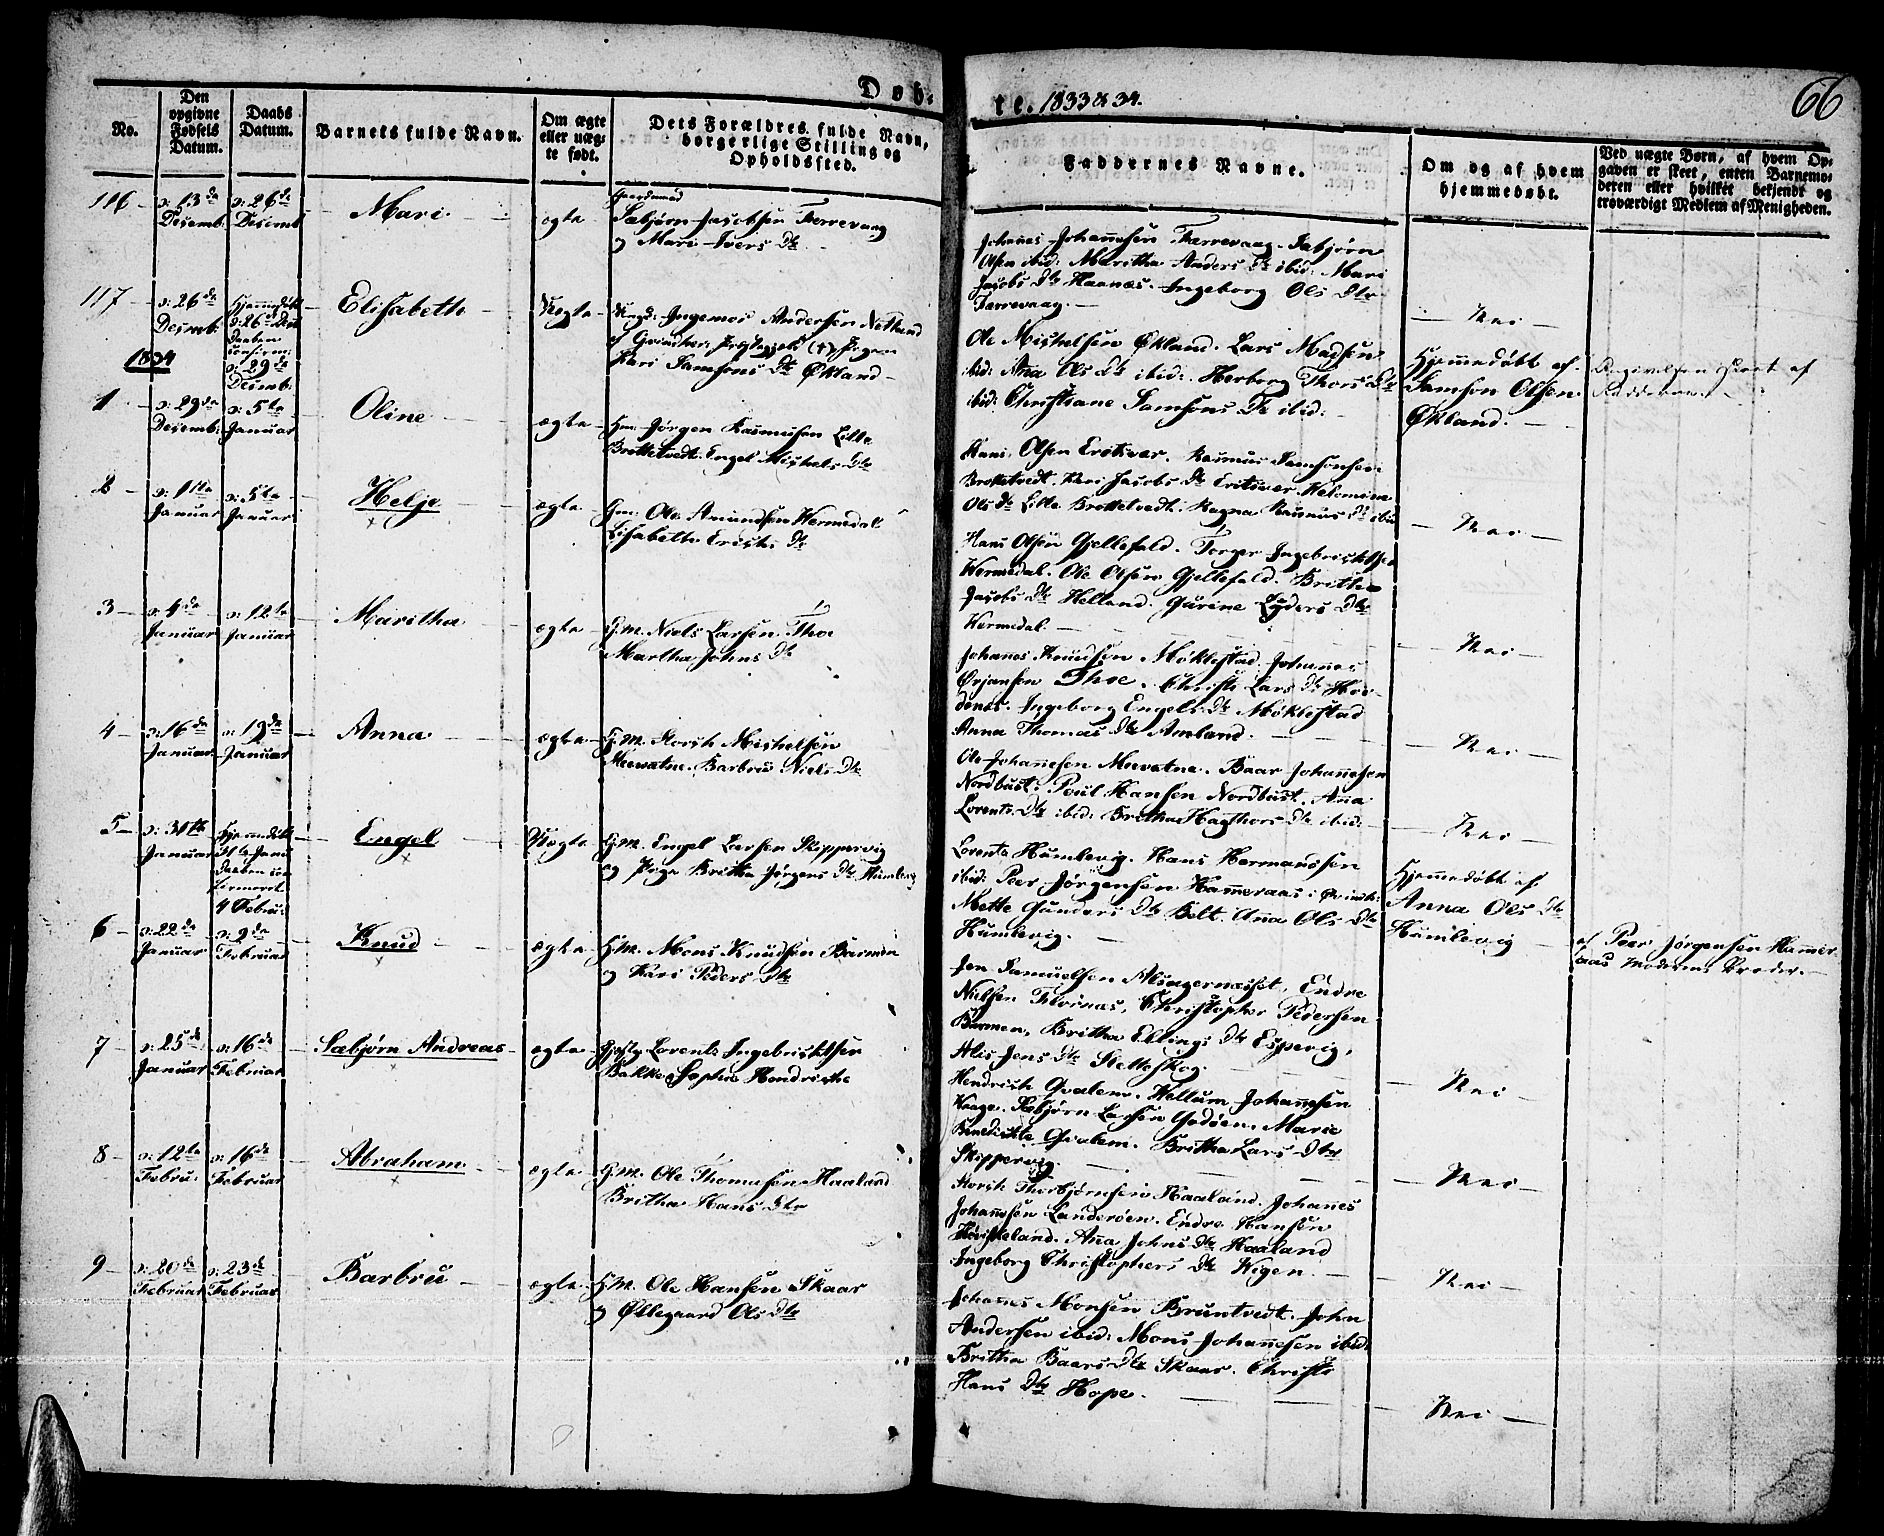 Døb-
te. 1833 & 34.
66
No.
Den opgivne Fødsels Datum.
Daabs Datum.
Barnets fulde Navn.
Om ægte eller uægte født.
Dets Forældres fulde Navn, borgerlige Stilling og Opholdssted.
Faddernes Navne.
Om og af hvem hjemmedøbt.
Ved uægte Børn, af hvem Opgaven er skeet, enten Barnemoderen eller hvilket bekjendt og troværdigt Medlem af Menigheden.
116
d: 13de Desemb:
d: 26de Desemb
Mari
ægte
Gaardmand
Sæbjørn Jacobsen Færrevaag
og Mari Ivers Dtr
Johannes Johannesen Færrevaag. Sæbjørn
Olsen ibid: Maritha Anders Dtr ibid: Mari
Jacobs Dtr Haanæs. Ingeborg Ols Dtr
Færrevaag.
Nei
117
d: 26de Desemb:
Hjemmedøbt
d: 26de Des
Daaben
confirm:
d: 29de
Desemb:
Elisabeth
Uægte
Ungk: Ingemor Andersen Netland
Kari Samsons Dtr Økland
Ole Mishelsen Økland. Lars Madsen
ibid: Anna Ols Dtr ibid: Herborg Thors Dtr
ibid: Christiane Samsons Dtr ibid:
Hjemmedøbt af
Samson Olsen
Økland.
Angivelsen skeet af
Fadderne
1834
1
d: 29de Desemb:
d: 5te Januar
Oline
ægte
Hm: Jørgen Rasmusen Lille
Brottetvedt. Engel Mishels Dtr
Hans Olsen Eretsvær. Rasmus Samsonsen
Brottetvedt. Kari Jacobs Dtr Eritsvær
Ols Dtr Lille Brottetvedt. Ragna Rasmus Dtr ibid
Nei
2
d: 1ste Januar
d: 5te Januar
Helje
ægte
Gm: Ole Amundsen Wermedal
Lisabeth Erichs Dtr
Hans Olsen Gjellefald. Torger Ingebrichtsen
Wermedal. Ole Olsen Gjellefald. Britha
Jacobs Dtr Helland. Gurine Lyders Dtr
Wermedal
Nei
3
d: 4de Januar
d: 12te Januar
Maritha
ægte
G.M. Niels Larsen Thoe
Martha Johns Dtr
Johannes Knudsen Møklestad. Johannes
Ørjansen Thoe. Christi Lars Dtr Hov-
denes. Ingeborg Engels Dtr Møklestad
Anna Thomas Dtr Amland.
Nei
4
d: 16de Januar
d: 19de Januar
Anna
ægte
G.M. Storch Mishelsen
Mevatne. Barbru Niels Dtr
Ole Johannesen Mevatne. Baar Johannesen
Nordbust. Poul Hansen Nordbust. Anna
Lorents Dtr ibid: Britha Hagthors Dtr ibid:
Nei
5
d: 31te Januar
Hjemmedøbt
31te Janu
Daaben con
firmeret
4 Febru:
Engel
Uægte
G.M. Engel Larsen Skippervig
og Pige Britha Jørgens Dtr Humlevig
Lorents Humlevig. Hans Hermansen
ibid: Peer Jørgensen Hammeraas i
Mette Gunders Dtr Belt. Anna Ols Dtr
Humlevig.
Hjemmedøbt af
Anna Ols Dtr
Humlevig
af Peer Jørgensen Hammer-
aas Moderens Broder.
6
d: 22de Januar
d: 9de Februar
Knud
ægte
G.M. Mons Knudsen Barmen
og Kari Peders Dtr
Jon Samuelsen Alsagernæsset. Endre
Nielsen Flornæs, Christopher Pedersen
Barmen, Britha Ellings Dtr Espevig,
Alis Jens Dtr Sletteskog.
Nei
7
d: 25de Januar
d: 16de Februar
Sæbjørn Andreas
ægte
Lorents Ingebrichtsen
Bakke Sophie Hendriche
Hendrich Qvalem. Hellum Johannesen
Waage. Sæbjørn Larsen Godøen. Marie
Benedichte Qvalem. Britha Lars Dtr
Skippervig.
Nei
8
d: 12te Febru:
d: 16de Februar
Abraham
ægte
G.M. Ole Thomasen Haaland
Britha Hans Dtr
Storch Thorbjørnsen Haaland. Johannes
Johannesen Landerøen. Endre Hansen
Anna Johns Dtr Haaland
Ingeborg Christophers Dtr Wigen.
Nei
9
d: 20de Februar
d: 23de Februar
Barbru
ægte
G.M. Ole Hansen Skaar
og Øllegaard Ols Dtr
Johannes Monsen Bruntvedt. John
Andersen ibid: Mons Johannesen ibid:
Britha Baars Dtr Skaar. Christi
Hans Dtr Hope.
Nei